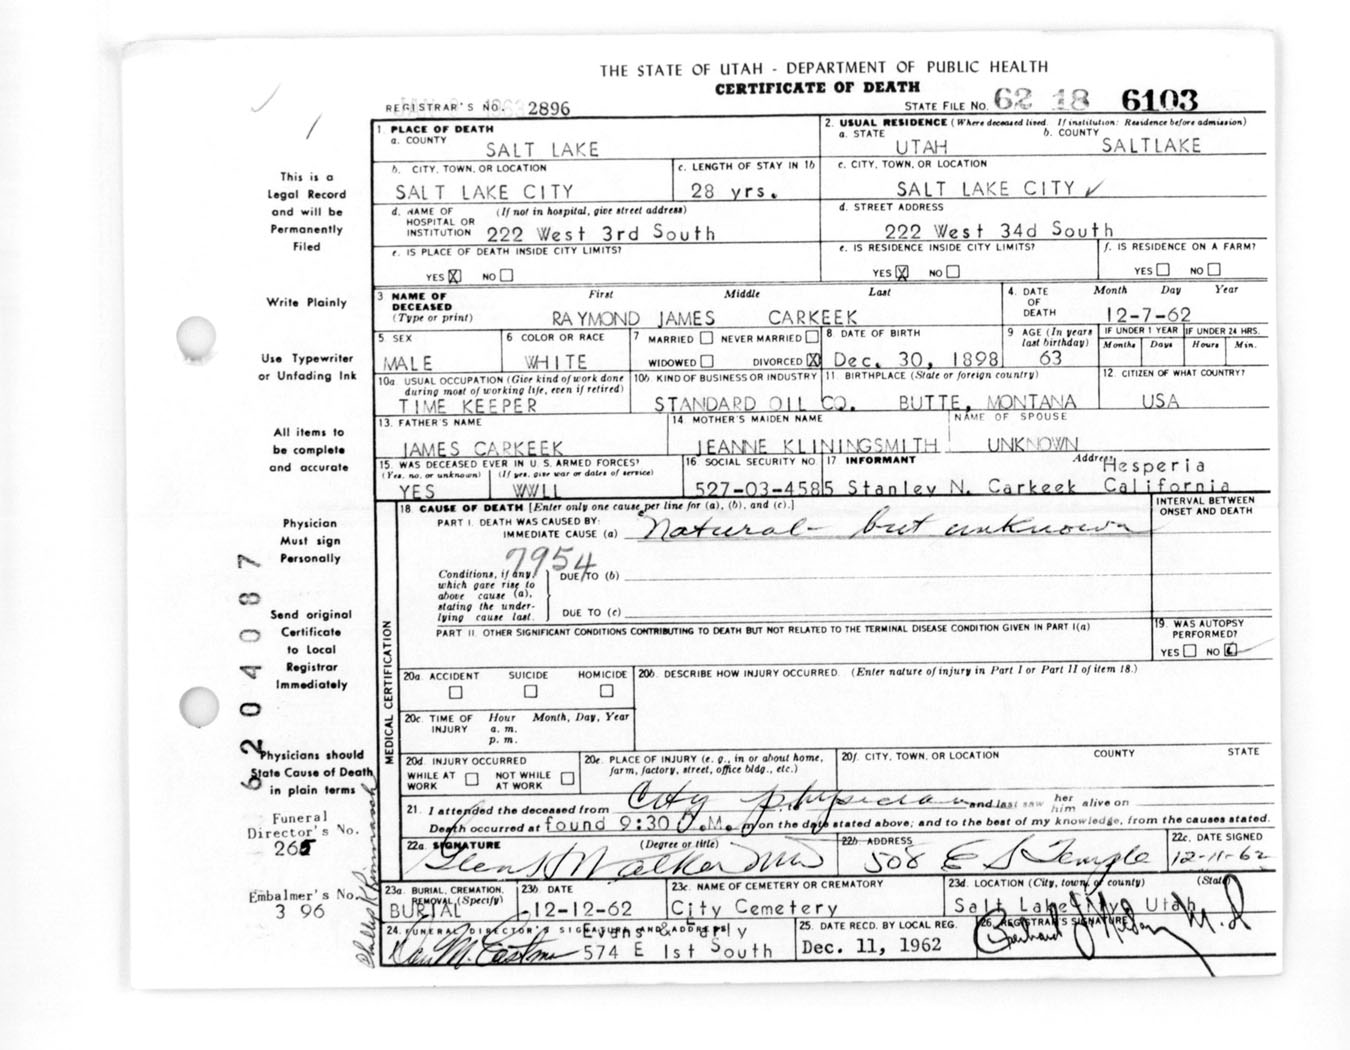 THE STATE OF UTAH - DEPARTMENT OF PUBLIC HEALTH
CERTIFICATE OF DEATH
REGISTRAR'S NO. 2896
STATE FILE NO. 62 18 6103
This is a
Legal Record
and will be
Permanently
Filed
Write Plainly
Use Typewriter
or Unfading Ink
All items to
be complete
and accurate
Physician
Must sign
Personally
Send original
Certificate
to Local
Registrar
Immediately
Physicians should
State Cause of Death
in plain terms
Funeral
Director's No.
265
Embalmer's No.
3 96
6204087
1. PLACE OF DEATH
a. COUNTY
SALT LAKE
2. USUAL RESIDENCE (Where deceased lived. If institution: Residence before admission)
a. STATE b. COUNTY
UTAH SALTLAKE
b. CITY, TOWN, OR LOCATION
SALT LAKE CITY
c. LENGTH OF STAY IN 1b
28 yrs.
c. CITY, TOWN, OR LOCATION
SALT LAKE CITY ✓
d. NAME OF (If not in hospital, give street address)
HOSPITAL OR
INSTITUTION 222 West 3rd South
d. STREET ADDRESS
222 West 34d South
e. IS PLACE OF DEATH INSIDE CITY LIMITS?
YES X NO
e. IS RESIDENCE INSIDE CITY LIMITS?
YES X NO
f. IS RESIDENCE ON A FARM?
YES NO
3 NAME OF First Middle Last
DECEASED
(Type or print) RAYMOND JAMES CARKEEK
4. DATE Month Day Year
OF
DEATH 12-7-62
5. SEX
MALE
6 COLOR OR RACE
WHITE
7 MARRIED NEVER MARRIED
WIDOWED DIVORCED X
8 DATE OF BIRTH
Dec. 30, 1898
9 AGE (In years
last birthday)
63
IF UNDER 1 YEAR IF UNDER 24 HRS.
Months Days Hours Min.
10a USUAL OCCUPATION (Give kind of work done
during most of working life, even if retired)
TIME KEEPER
10b. KIND OF BUSINESS OR INDUSTRY
STANDARD OIL CO.
11. BIRTHPLACE (State or foreign country)
BUTTE, MONTANA
12. CITIZEN OF WHAT COUNTRY?
USA
13. FATHER'S NAME
JAMES CARKEEK
14 MOTHER'S MAIDEN NAME
JEANNE KLININGSMITH
NAME OF SPOUSE
UNKNOWN
15. WAS DECEASED EVER IN U. S. ARMED FORCES?
(Yes, no, or unknown) (If yes, give war or dates of service)
YES WWLL
16 SOCIAL SECURITY NO.
527-03-4585
17 INFORMANT Address
Stanley N. Carkeek
Hesperia
California
18 CAUSE OF DEATH [Enter only one cause per line for (a), (b), and (c).]
PART I. DEATH WAS CAUSED BY:
IMMEDIATE CAUSE (a) Natural - but unknown
INTERVAL BETWEEN
ONSET AND DEATH
7954
Conditions, if any,
which gave rise to
above cause (a),
stating the under-
lying cause last.
DUE TO (b)
DUE TO (c)
PART II. OTHER SIGNIFICANT CONDITIONS CONTRIBUTING TO DEATH BUT NOT RELATED TO THE TERMINAL DISEASE CONDITION GIVEN IN PART I(a)
19. WAS AUTOPSY
PERFORMED?
YES NO
MEDICAL CERTIFICATION
20a. ACCIDENT SUICIDE HOMICIDE
20b. DESCRIBE HOW INJURY OCCURRED. (Enter nature of injury in Part I or Part II of item 18.)
20c. TIME OF Hour Month, Day, Year
INJURY a. m.
p. m.
20d. INJURY OCCURRED
WHILE AT NOT WHILE
WORK AT WORK
20e. PLACE OF INJURY (e. g., in or about home,
farm, factory, street, office bldg., etc.)
20f. CITY, TOWN, OR LOCATION COUNTY STATE
21. I attended the deceased from City physician and last saw her him alive on
Death occurred at found 9:30 P.M. m on the date stated above; and to the best of my knowledge, from the causes stated.
22a. SIGNATURE (Degree or title)
22b. ADDRESS
508 E S Temple
22c. DATE SIGNED
12-11-62
23a. BURIAL, CREMATION,
REMOVAL (Specify)
BURIAL
23b. DATE
12-12-62
23c. NAME OF CEMETERY OR CREMATORY
City Cemetery
23d. LOCATION (City, town, or county) (State)
Salt Lake City, Utah
24. FUNERAL DIRECTOR'S SIGNATURE AND ADDRESS
Evans & Early
574 E 1st South
25. DATE RECD. BY LOCAL REG.
Dec. 11, 1962
26. REGISTRAR'S SIGNATURE